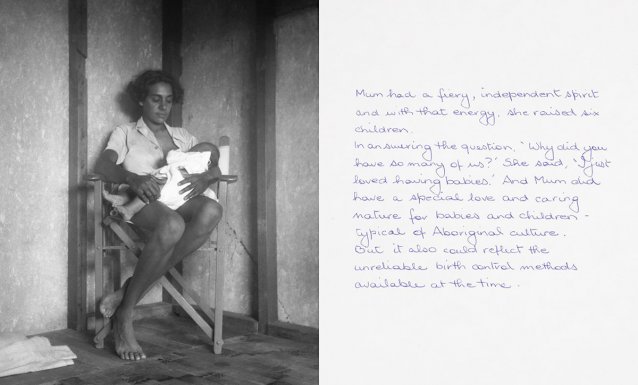 Mum had a fiery, independent spirit
and with that energy, she raised six
children.
In answering the question, 'Why did you
have so many of us?' She said, 'I just
loved having babies.' And Mum did
have a special love and caring
nature for babies and children -
typical of Aboriginal culture.
But it also could reflect the
unreliable birth control methods
available at the time.